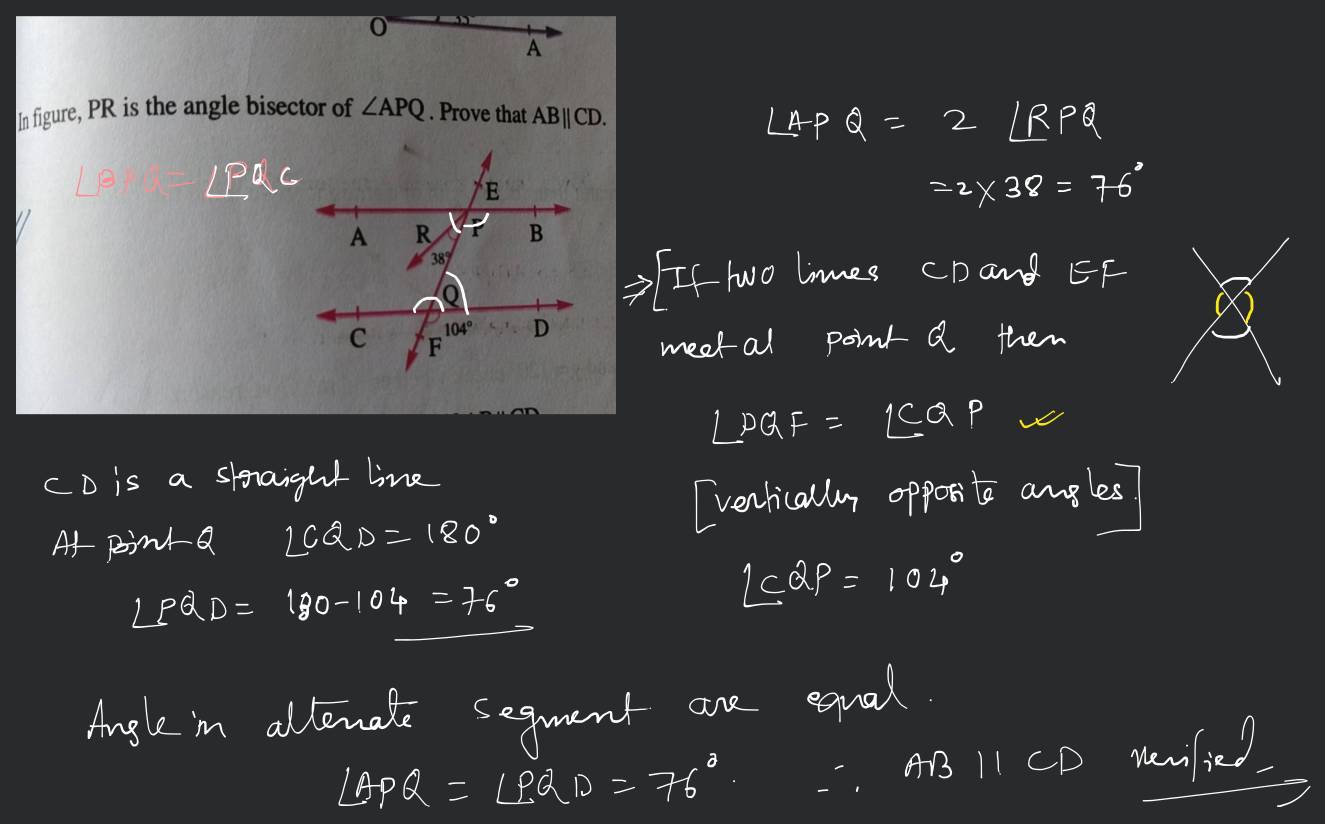 O
A
In figure, PR is the angle bisector of ∠APQ. Prove that AB||CD.
∠PQC
E
A R P B
38°
Q
C 104° D
F
∠APQ = 2 ∠RPQ
=2×38 = 76°
⇒[If two limes CD and EF
meet at point Q then
∠DQF = ∠CQP
[vertically opposite angles]
∠CQP = 104°
CD is a straight line
At point Q ∠CQD = 180°
∠PQD = 180-104 = 76°
Angle in alternate segment are equal.
∠APQ = ∠PQD = 76°. ∴ AB || CD verified